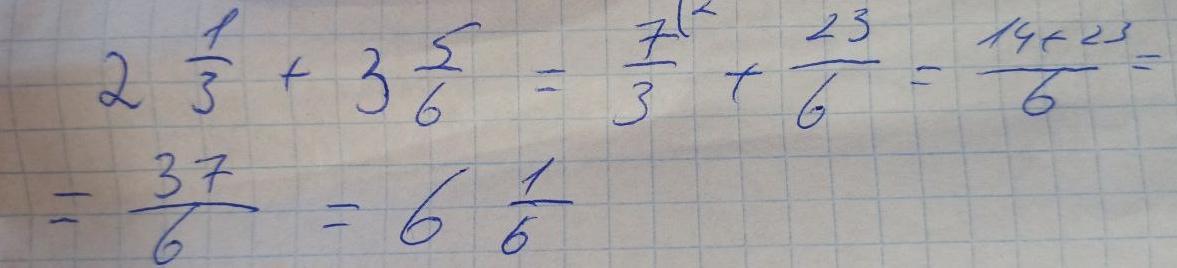 2 1/3 + 3 5/6 = 7/3 (2 + 23/6 = 14+23/6 =
= 37/6 = 6 1/6